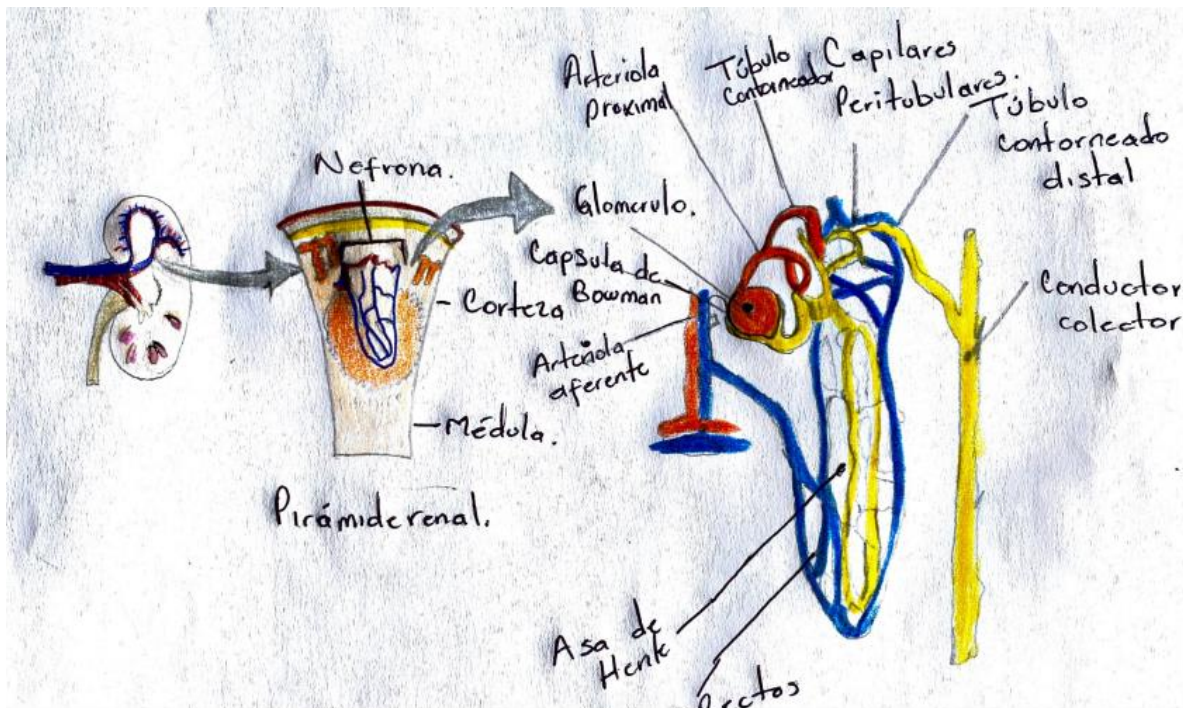 Nefrona.
Corteza
Médula.
Pirámide renal.
Arteriola
proximal
Túbulo
Contorneador
Capilares
Peritubulares.
Túbulo
contorneado
distal
Glomerulo.
Capsula de
Bowman
Arteriola
aferente
Conductor
colector
Asa de
Henle
rectos